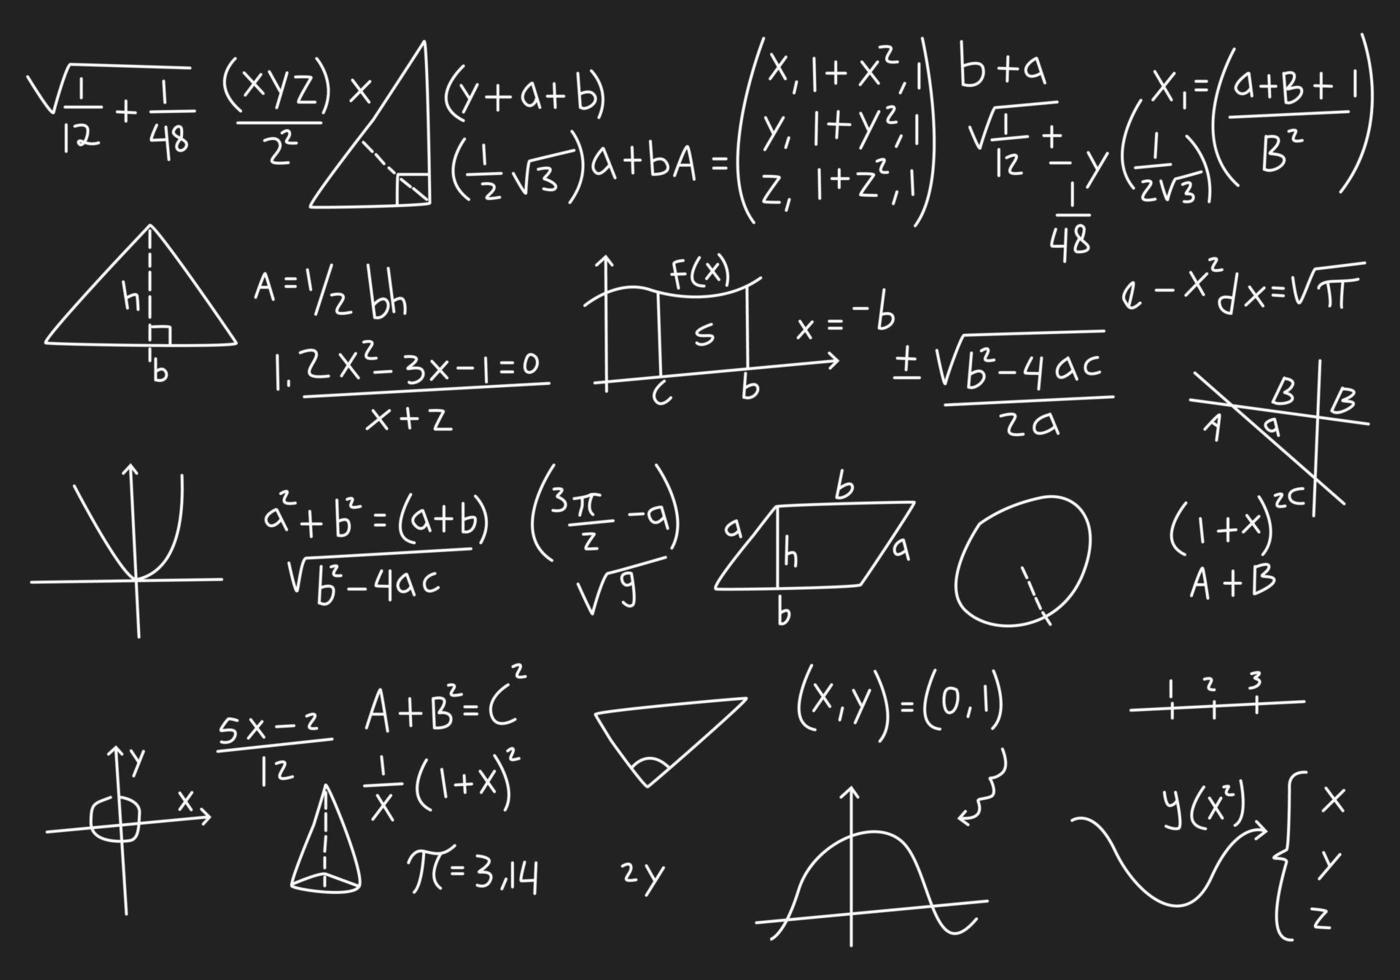 √(1/12 + 1/48)
(xyz)/2²
x
(y+a+b)
(1/2 √3)a+bA =
(x, 1+x², 1
y, 1+y², 1
z, 1+z², 1)
b+a
√(1/12) + - 1/48
y(1/2√3)
x₁=((a+B+1)/B²)
h
b
A=1/2 bh
1. (2x²-3x-1=0)/(x+z)
F(x)
S
c
b
x = -b ± √(b²-4ac)/2a
e-x²dx=√π
B
B
A
a
c
a²+b²=(a+b)
√b²-4ac
(3π/2 -a)
√g
b
a
h
a
b
(1+x)²
A+B
(5x-2)/12
A+B²=C²
1/x (1+x)²
π=3,14
y
x
2y
(x,y)=(0,1)
1 2 3
y(x²)
{x
y
z